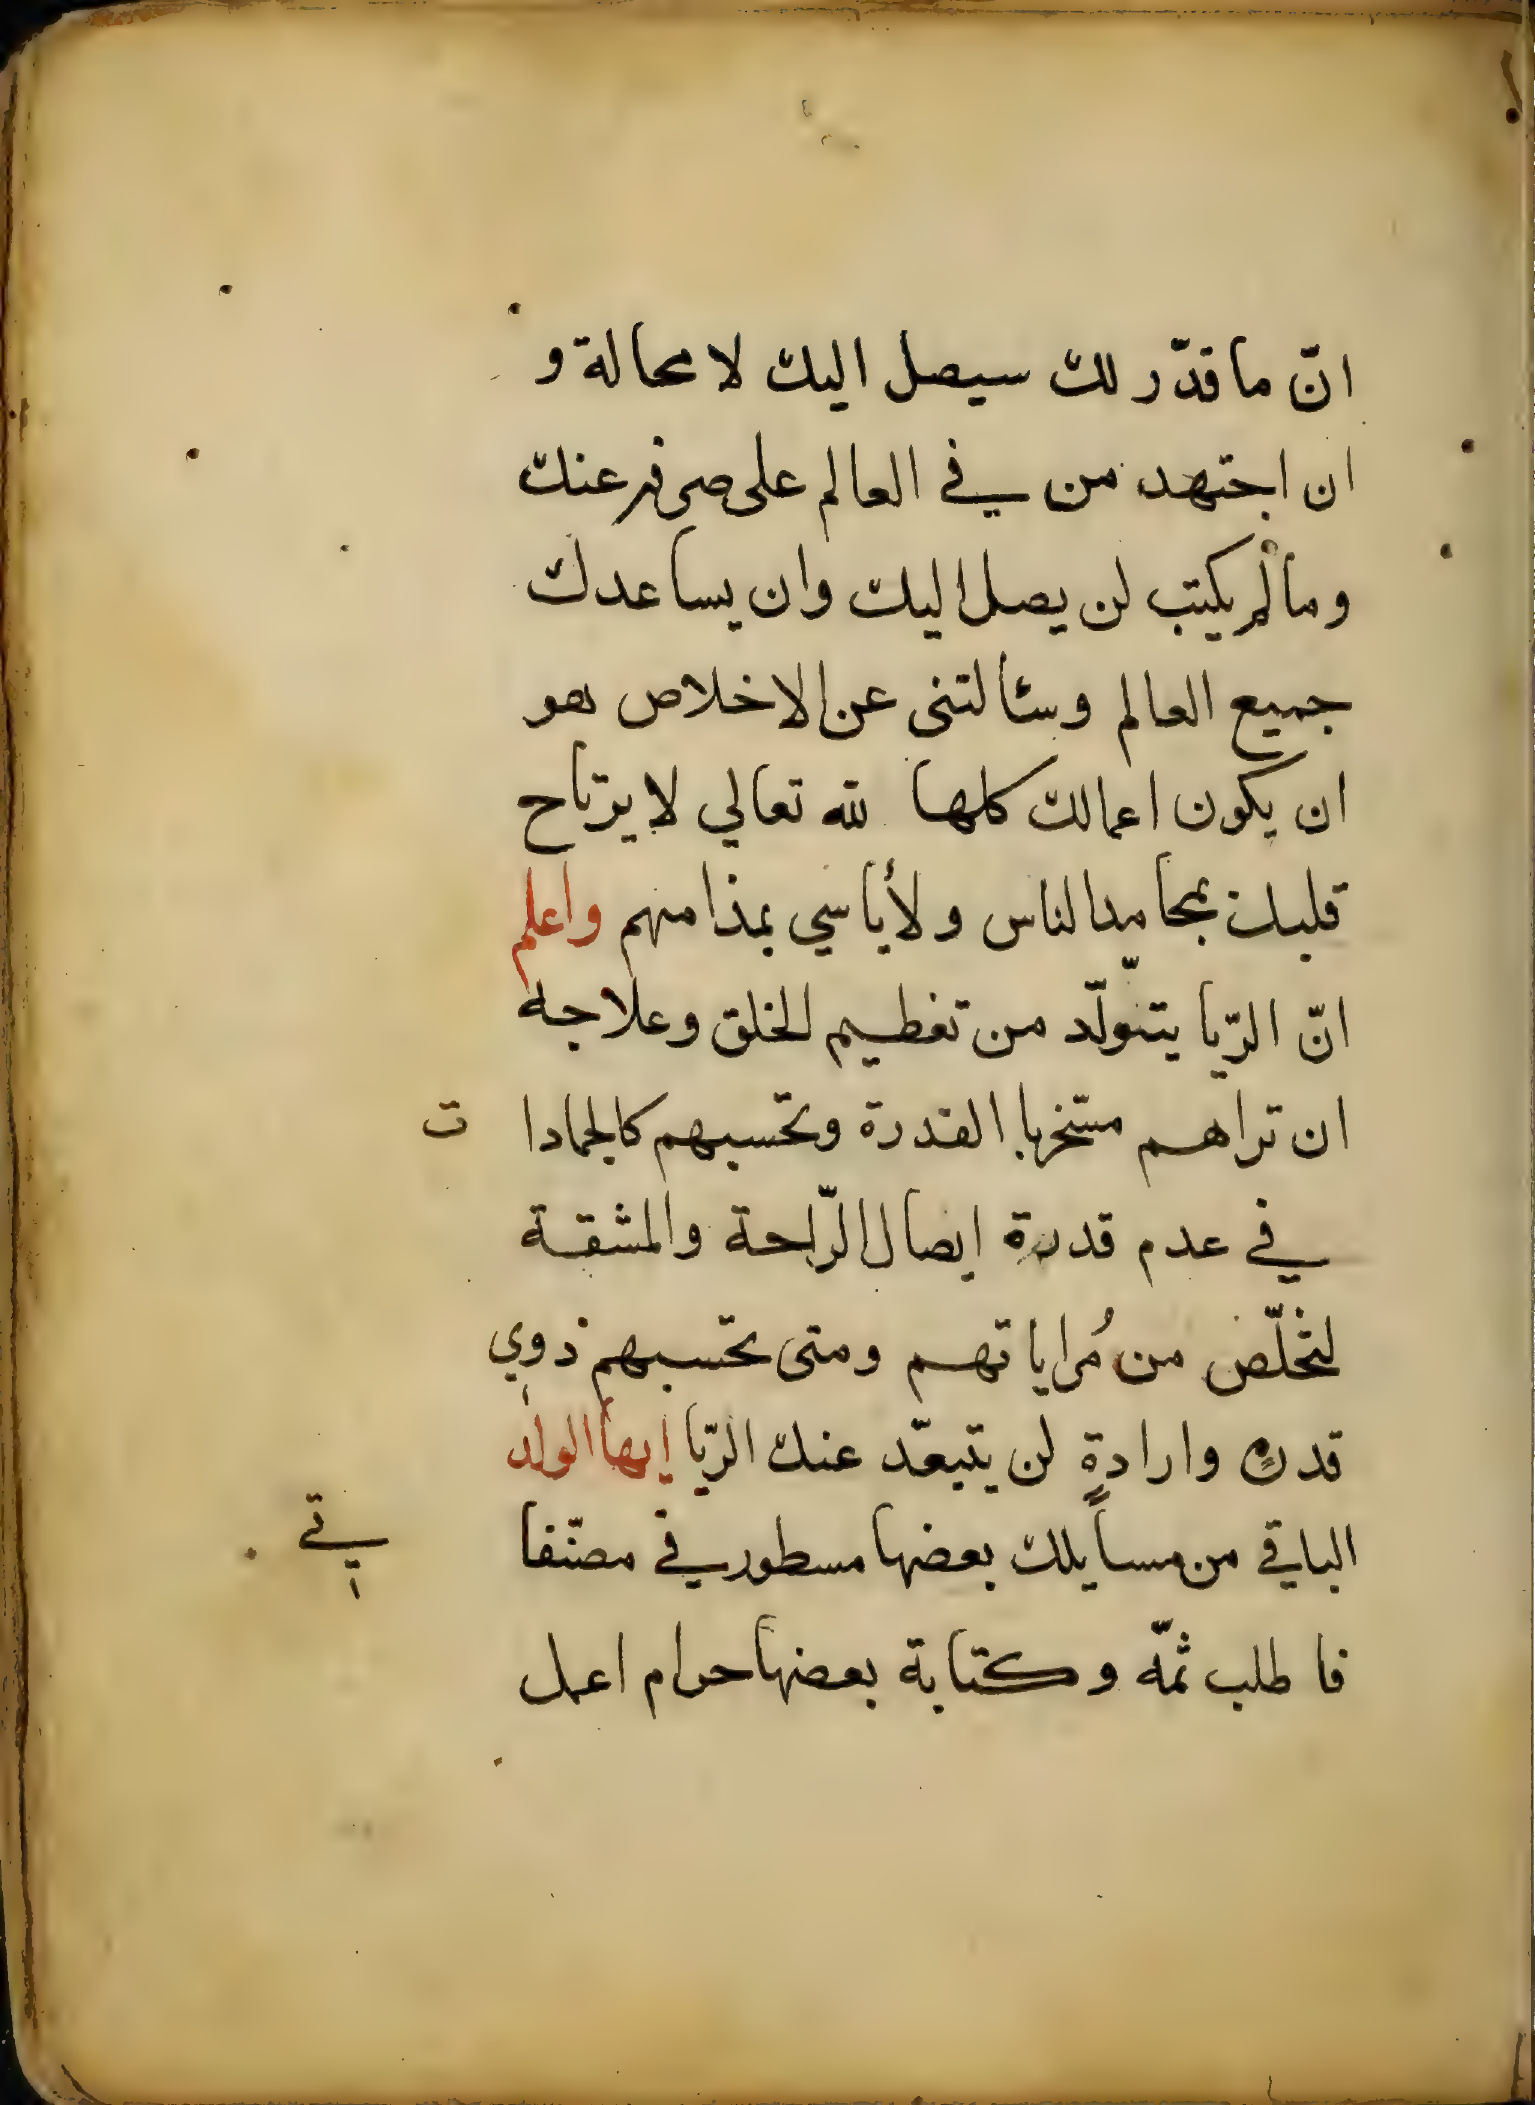 انّ ما قدّر لك سيصل اليك لا محالة و
ان اجتهد من في العالم على صرفه عنك
وما لم يكتب لن يصل اليك وان يساعدك
جميع العالم وسئالتنى عن الاخلاص هو
ان يكون اعمالك كلها لله تعالي لا يرتاح
قلبك بمحامد الناس ولأياسي بمذامهم واعلم
انّ الرّيا يتولّد من تعظيم الخلق وعلاجه
ان تراهم مسخر با القدرة وتحسبهم كالجمادا ت
في عدم قدرة ايصال الرّاحة والمشقة
لتخلّص من مُراياتهم ومتى تحسبهم ذوي
قدرةٍ وارادةٍ لن يتبعّد عنك الرّيا ايها الولد
الباقي من مسايلك بعضها مسطور في مصنّفا تي
فاطلب ثمّه وكتابة بعضها حرام اعمل